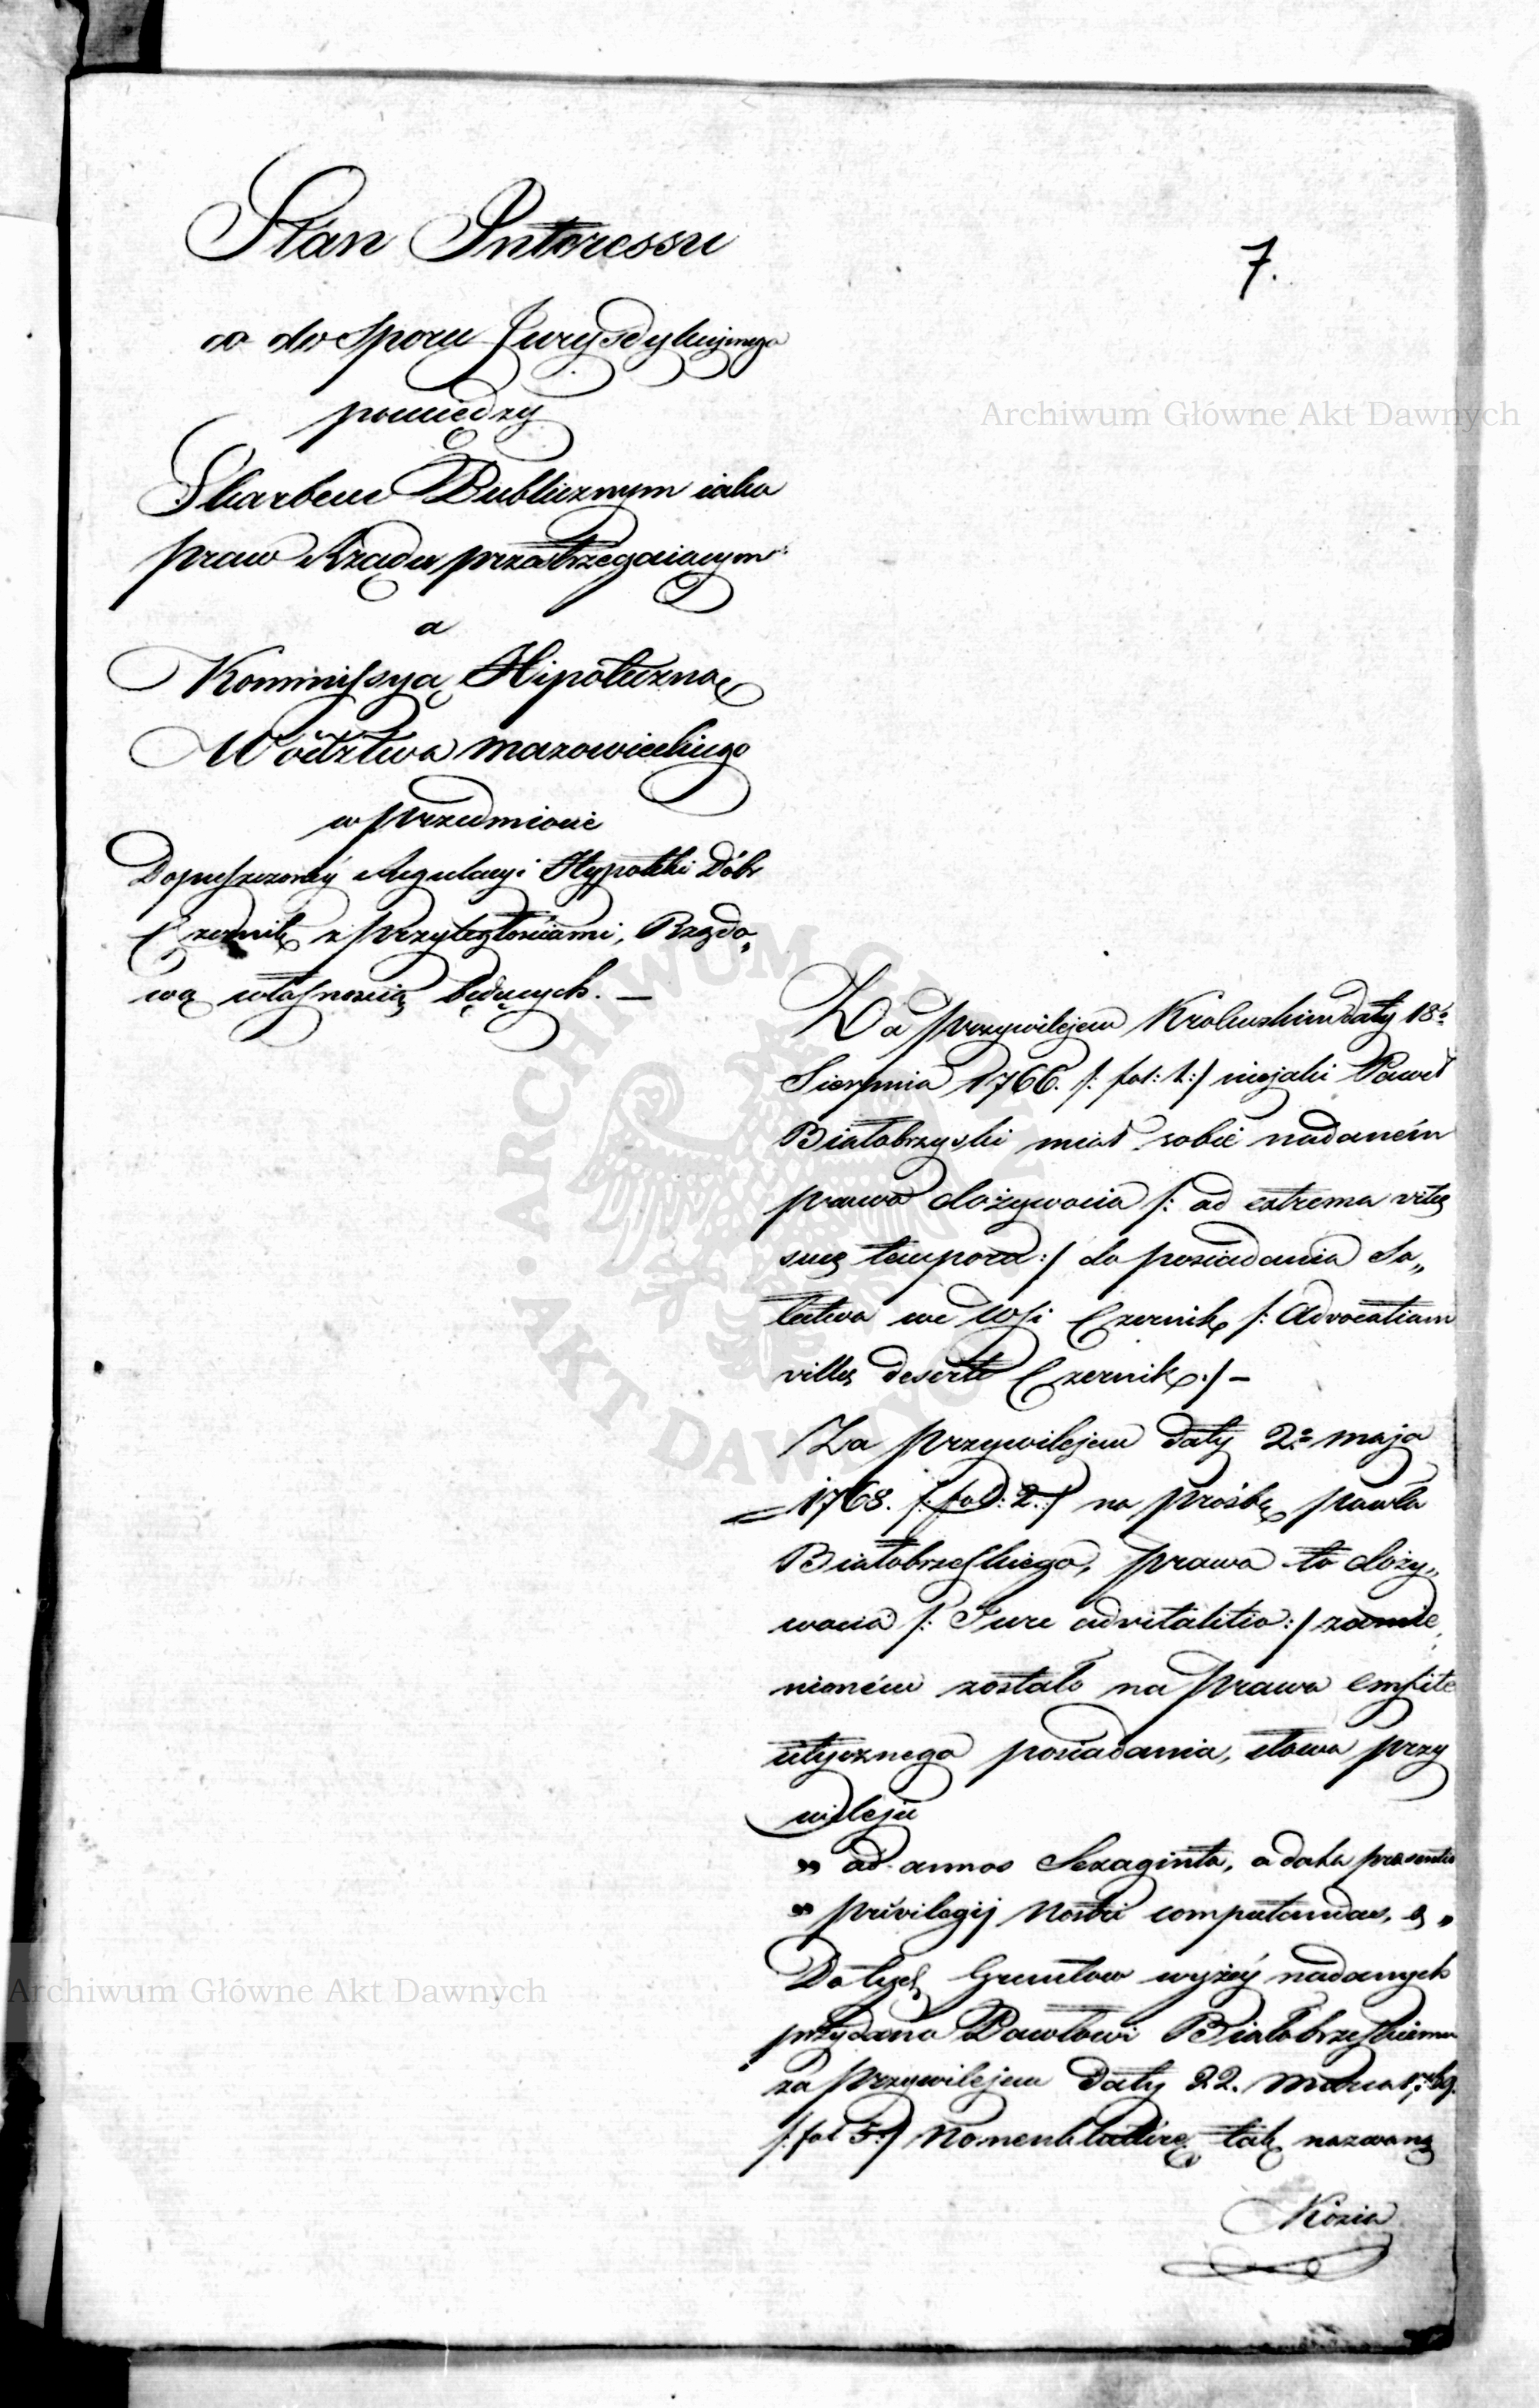 7.
Stan Interessu
co do Sporu Jurysdykcyjnego
pomiędzy
Skarbem Publicznym iako
praw Rządu przestrzegaiącym
a
Kommissyą Hipoteczną
Wództwa mazowieckiego
w przedmiocie
Dopuszczoney Regulacyi Hypoteki Dóbr
Czernik z przyległościami, Rządo„
wą własnością będących. —
Za przywilejem Krolewskim daty 18º
Sierpnia 1766. /: fol: 1:/ niejaki Paweł
Białobrzyski miał sobie nadaném
prawo dożywocia /: ad extrema vitę
suę tempora :/ do posiadania So„
łectwa we Wsi Czernik /: Advocatiam
villę desertę Czernik :/ —
Za przywilejem daty 2º maja
1768. /: fol: 2. :/ na prośbę pawła
Białobrzeskiego, prawo to doży„
wocia /: Jure advitalitio :/ zamie„
nioném zostało na prawo emfite
utycznego posiadania, słowa przy
wileju
„ ad annos Sexaginta, a data præsentis
„ privilegij Nostri computandos, &„
Do tych Gruntow wyżéy nadanych
przydano Pawłowi Białobrzeskiemu
za przywilejem daty 22. Marca 1769.
/: fol 5:/ Nomenklaturę tak nazwaną
Kozia
Archiwum Główne Akt Dawnych
Archiwum Główne Akt Dawnych
ARCHIWUM GŁÓWNE • AKT DAWNYCH •